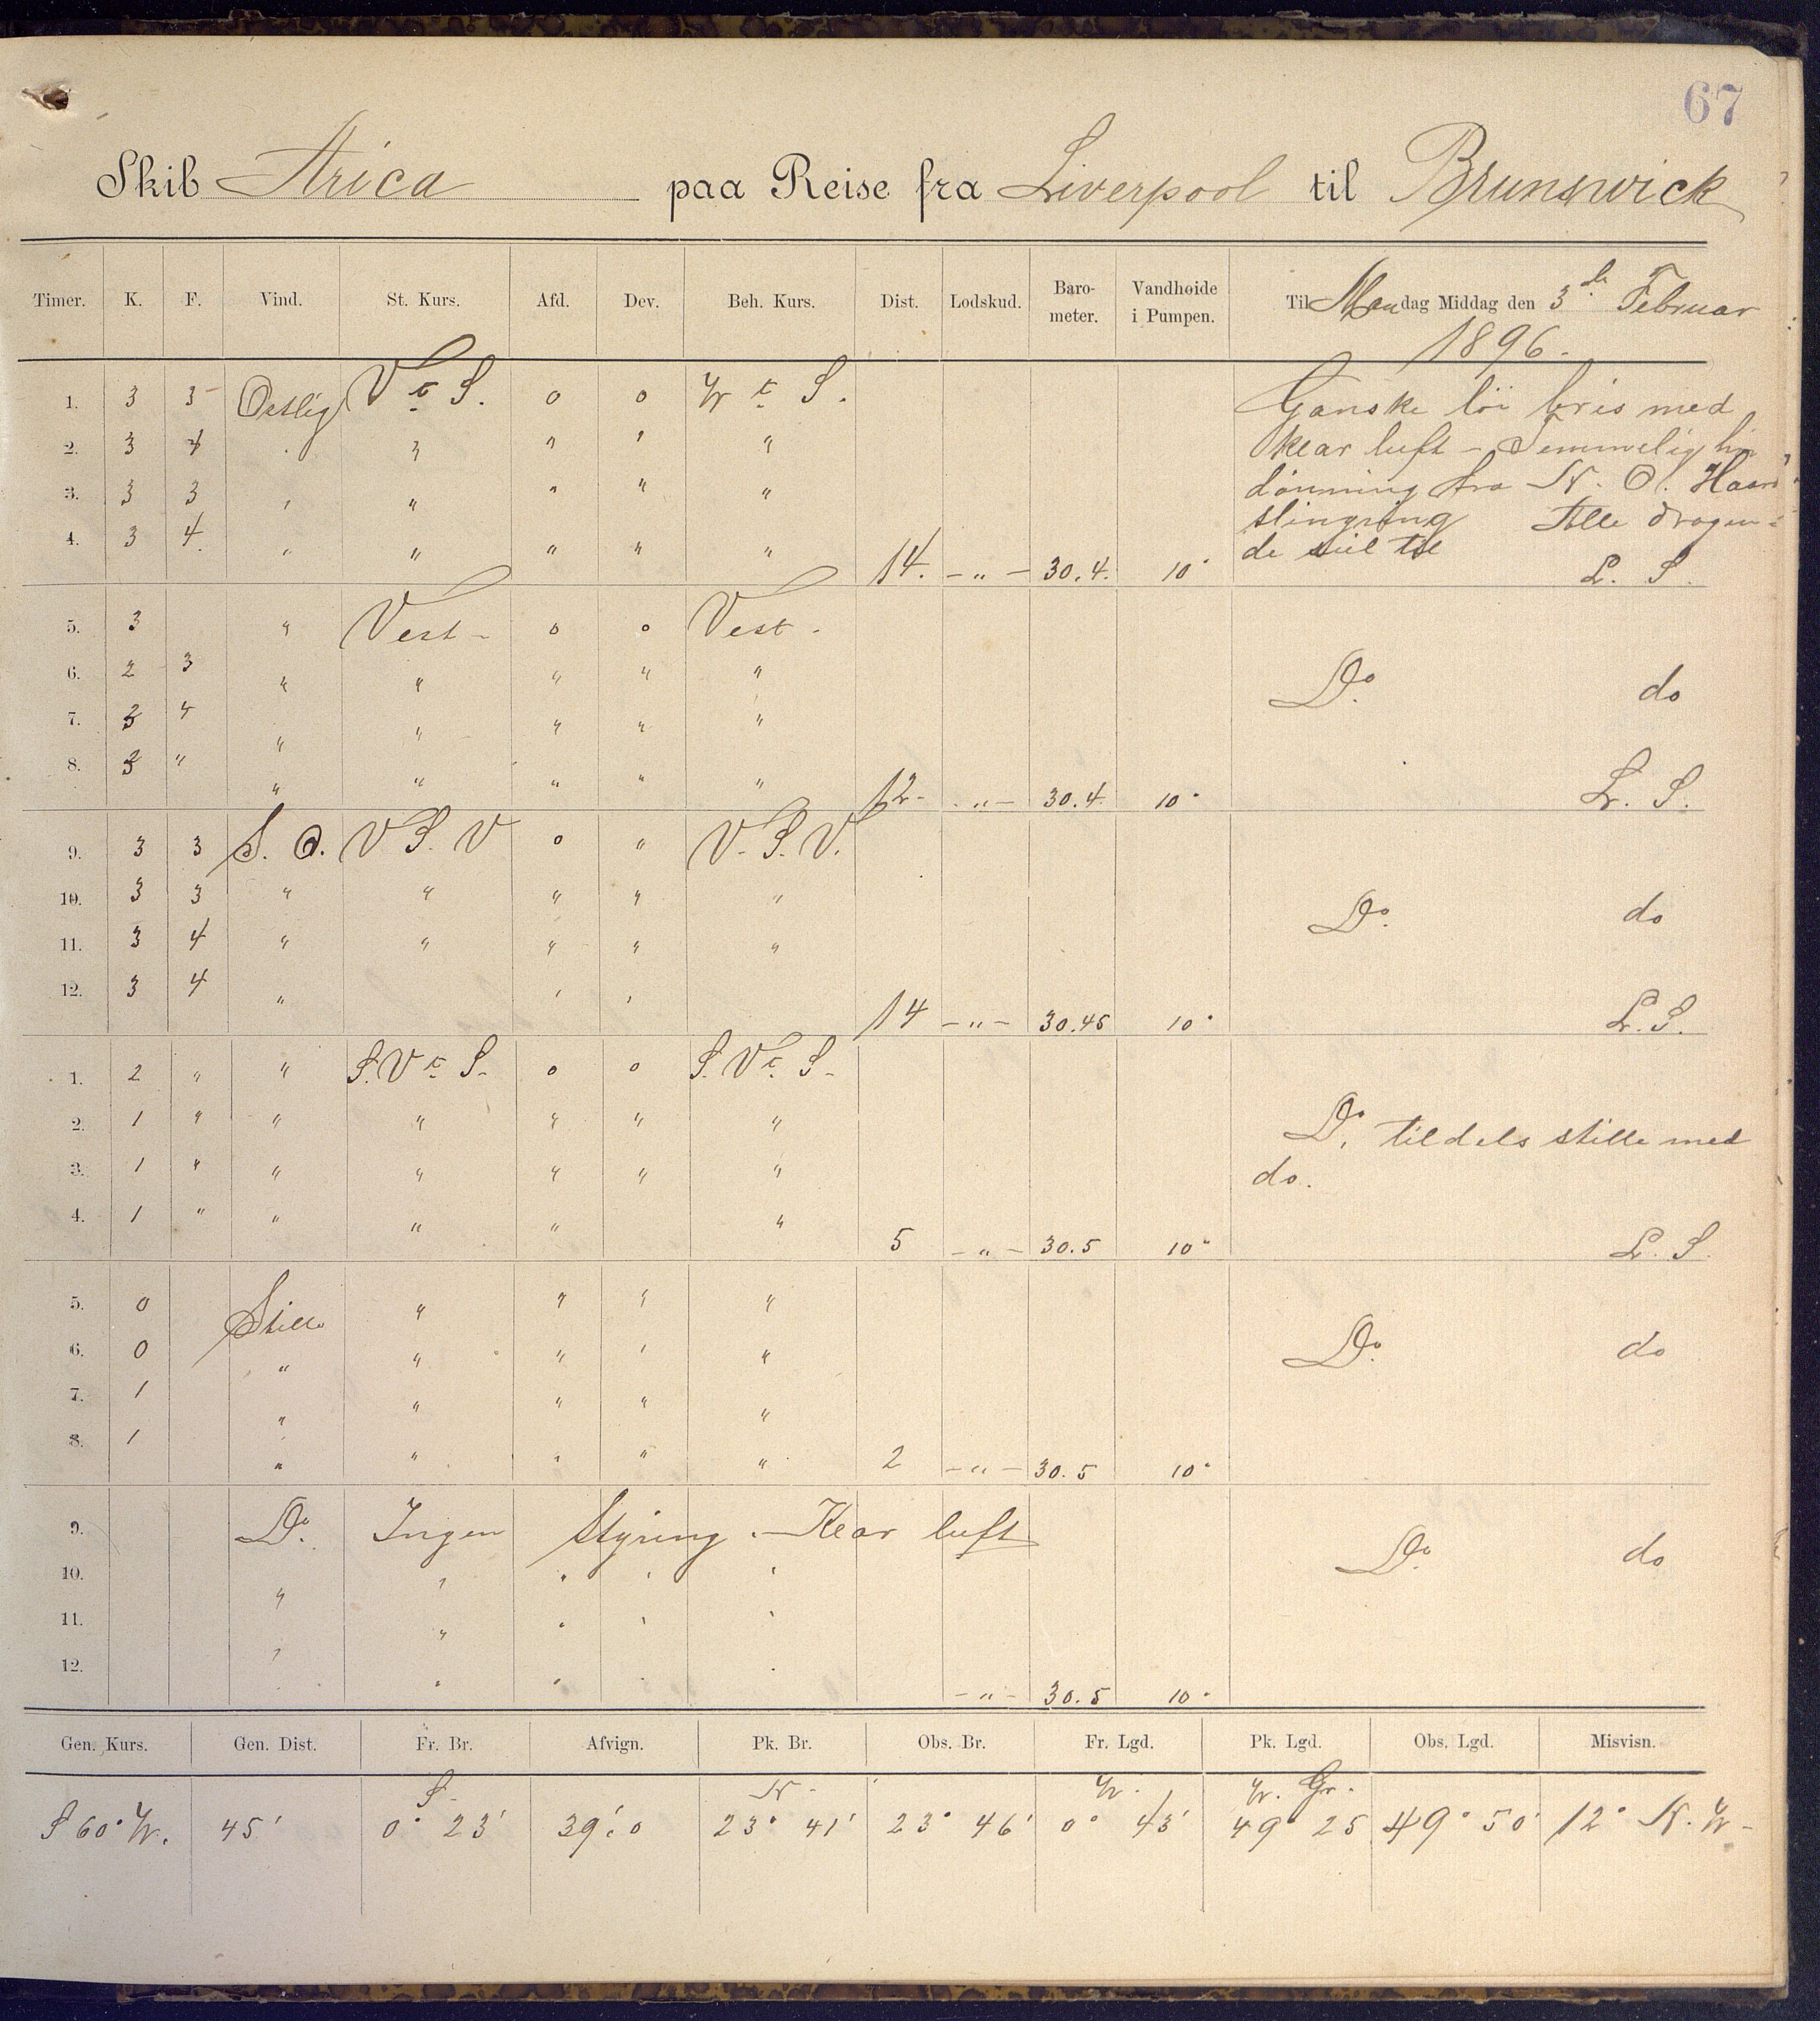 67
Skib Arica paa Reise fra Liverpool til Brunswick
Timer. K. F. Vind. St. Kurs. Afd. Dev. Beh. Kurs. Dist. Lodskud. Baro-meter. Vandhøide i Pumpen. Til Mandag Middag den 3de Februar
1896.
1. 3 3 Ostlig V t S. 0 0 W t S. Ganske löi bris med
2. 3 4 " " " " " klar luft - Temmelig
3. 3 3 " " " " " dönning fra N. O. Haard
4. 3 4 " " " " " 14. - " - 30.4. 10" slingring Alle dragen-
de seil til L. S.
5. 3 " Vest - 0 0 Vest -
6. 2 3 " " " " " Do. do
7. 4 " " " " "
8. " " " " " " 12- - " - 30.4. 10" L. S.
9. 3 3 S. O. V S. V 0 " V. S. V.
10. 3 3 " " " " " Do. do
11. 3 4 " " " " "
12. 3 4 " " " 14 - " - 30.45 10" L. S.
1. 2 " " S. V t S- 0 0 S. V t S-
2. 1 " " " " " " Do. tildels stille med
3. 1 " " " " " " do.
4. 1 " " " " " 5 - " - 30.5 10" L. S.
5. 0 Stille " " " "
6. 0 " " " " " Do. do
7. 1 " " " " "
8. 1 " " " " " 2 - " - 30.5 10"
9. Do. Ingen Styring. - Klar luft Do. do
10. " " " " "
11. " " " " "
12. " " " - " - 30.5 10"
Gen. Kurs. Gen. Dist. Fr. Br. Afvign. Pk. Br. Obs. Br. Fr. Lgd. Pk. Lgd. Obs. Lgd. Misvisn.
S- N- W. W. Gr.
S 60° W. 45' 0° 23' 39'.0 23° 41' 23° 46' 0° 43' 49° 25 49° 50' 12° N. W-